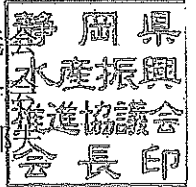 静岡県
水産振興
推進協議会
会長印